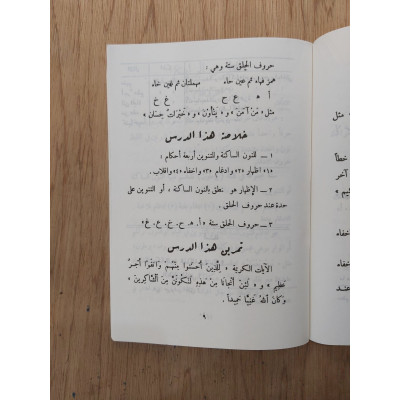 حروف الحلق ستة وهي :
همز فهاء ثم عين حاء مهملتان ثم غين خاء
أ ه ع ح غ خ
مثل « مَنْ آمَنَ » و « يَنْأَوْنَ » و « خَيْرَاتٌ حِسَان »
خلاصة هذا الدرس
١ ــ للنون الساكنة والتنوين أربعة أحكام :
«١» اظهار «٢» وادغام «٣» واخفاء «٤» واقلاب .
٢ ــ الإظهار هو نطق بالنون الساكنة أو التنوين على
حدة عند حروف الحلق .
٣ ــ حروف الحلق ستة «أ. هـ. ح. خ. ع. غ»
تمرين هذا الدرس
الآيات الكريمة « لِلَّذِينَ أَحْسَنُوا مِنْهُمْ وَاتَّقَوْا أَجْرٌ
عَظِيمٌ » و « لَئِنْ أَنْجَانَا مِنْ هَذِهِ لَنَكُونَنَّ مِنَ الشَّاكِرِينَ
وَكَانَ اللهُ غَنِيًّا حَمِيدًا .
٩
مثل
خطأ
آخر
اخفاء
عند